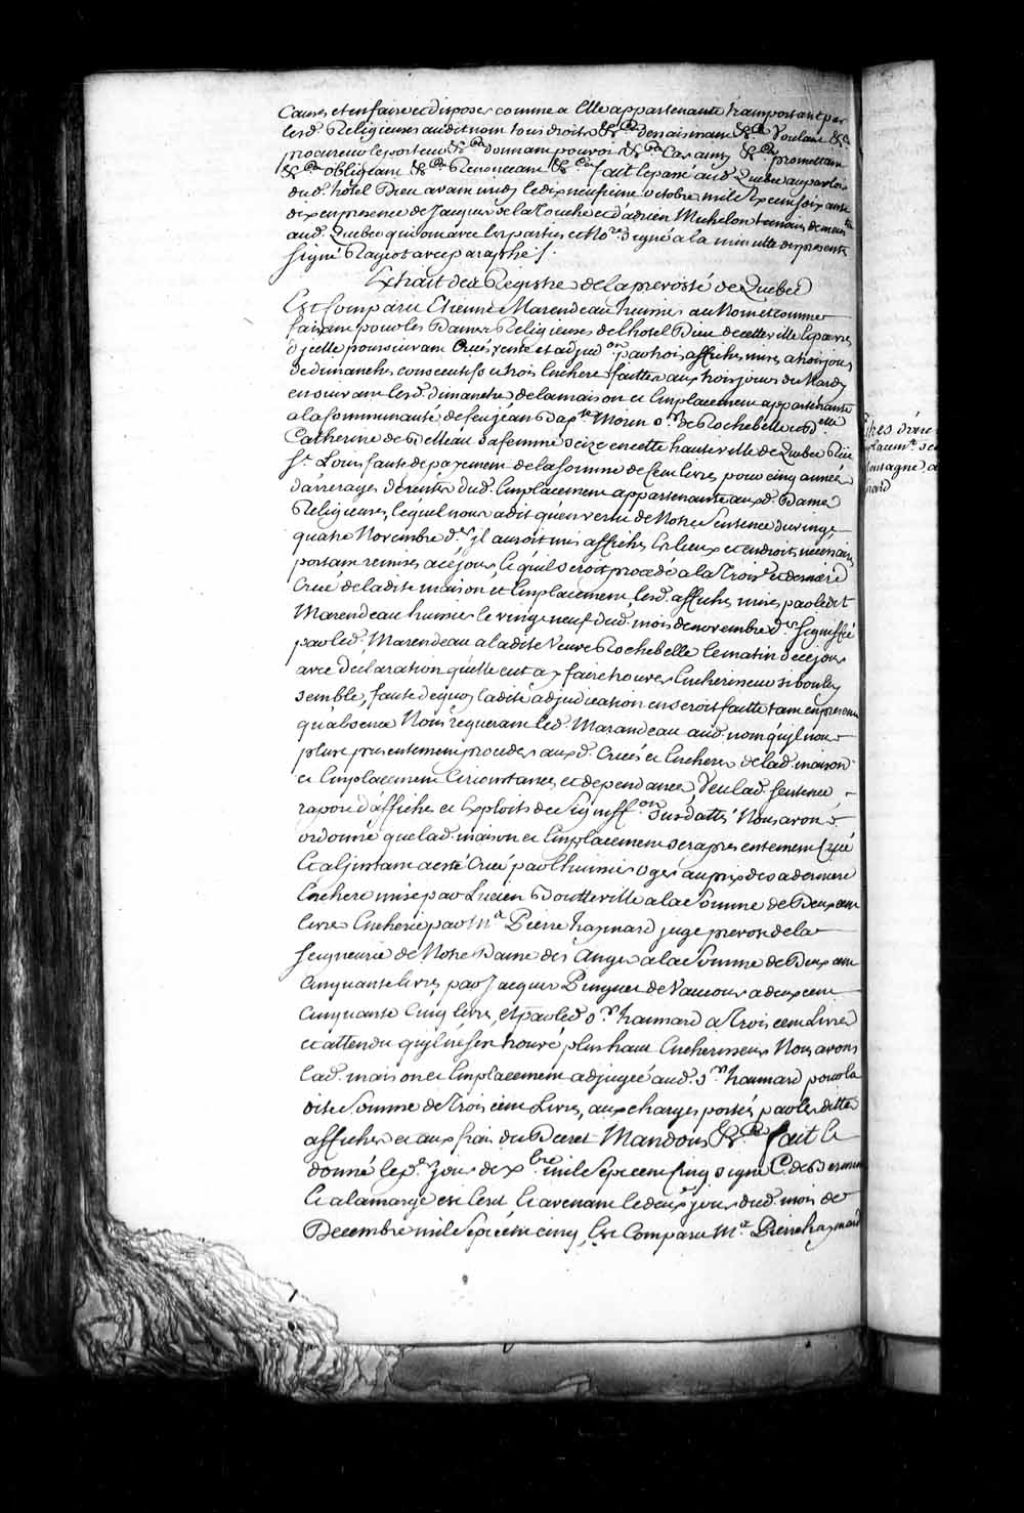 Causes et en faire et disposer comme a Elle appartenante transportant par
lesd. Religieuses audit nom tous droits &ca. dessaisinant &ca. Voulant &ca
procureur le porteur &ca. donnant pouvoir &ca. Car ainsy &ca. promettant
&ca. obligeant &ca. Renonceant &ca. fait et passé aud. Quebec au parloir
dud. hôtel Dieu avant midy le dix neufieme octobre mil six cent soix ante
dix en presence de Jacques de la Touche et d'adrien Michelon temoins demeurts
aud. Quebec qui ont avec les parties et Nore. signé a la minutte des presentes
signé Rageot avec paraphe /.
Extrait des Registres de la prevosté de Quebec
Est Comparu Etienne Marendeau huissier au Nom et comme
faisant pour les Dames Religieuses de l'hotel Dieu de cette ville les pauvres
d'jcelle poursuivant Criées vente et adjudon. par trois affiches mises a trois jours
de dimanches consecutifs et trois Encheres faittes aux trois jours de Mardy
ensuivant lesd. dimanches de la maison et Emplacement appartenante
a la Communauté de feu jean Bapte. Morin sr. de Rochebelle et Delle
Catherine de Belleau sa femme scize en cette haute ville de Quebec Rüe
St. Louis faute de payement de la somme de Cent livres pour cinq années
d'arrerages de rentes dud. Emplacement appartenante auxd. Dames
Religieuses, lequel nous a dit qu'en vertu de Notre Sentence du vingt
quatre Novembre der. jl auroit mis affiches Es lieux et endroits necessaires
portant remises a ce jour, et qu'il seroit procedé a la Troise. et derniere
Criée de la dite maison et Emplacement, lesd. affiches mises par ledit
Marendeau huissier le vingt neuf dud. mois de novembre der. signiffié
par led. Marendeau a la dite Veuve Rochebelle le matin de ce jour
avec declaration qu'elle eut a y faire trouver Encherisseur si bon luy
semble, faute de quoy ladite adjudication en seroit faitte tant en presence
qu'absence Nous requerant led. Marandeau aud. nom qu'jl nous
plaise presentement proceder auxd. Criées et Encheres de lad. maison
et Emplacement Circonstances et dependances, Veu lad. sentence
raport d'affiches et Exploits de Signiffon. susdattés Nous avons
ordonné que lad. maison et Emplacement sera presentement Crié
Et a l'jnstant a esté Crié par l'huissier Oger au prix de sa derniere
Enchere mise par Lucien Boutteville a la Somme de Deux cent
livres Encherie par Me. Pierre haymard juge prevost de la
seigneurie de Notre Dame des Anges a la Somme de Deux cent
Cinquante livres, par Jacques Pinguet de Vaucour a deux cent
Cinquante Cinq livres, et par led. sr. haimard a Trois cent Livres
et attendu qu'jl ne s'est trouvé plus haut Encherisseur Nous avons
lad. maison et Emplacement adjugée aud. sr. haimard pour la
dite Somme de Trois cent Livres, aux charges portés par les dittes
affiches et aux frais du Decret Mandons &ca. fait et
donné le pr. Jour de xbre mil Sept cent Cinq signé
Et a la marge est Ecrit Et avenant le deuxe jour dud. mois de
Decembre mil Sept cent cinq, Est Comparu Me. Pierre haymard